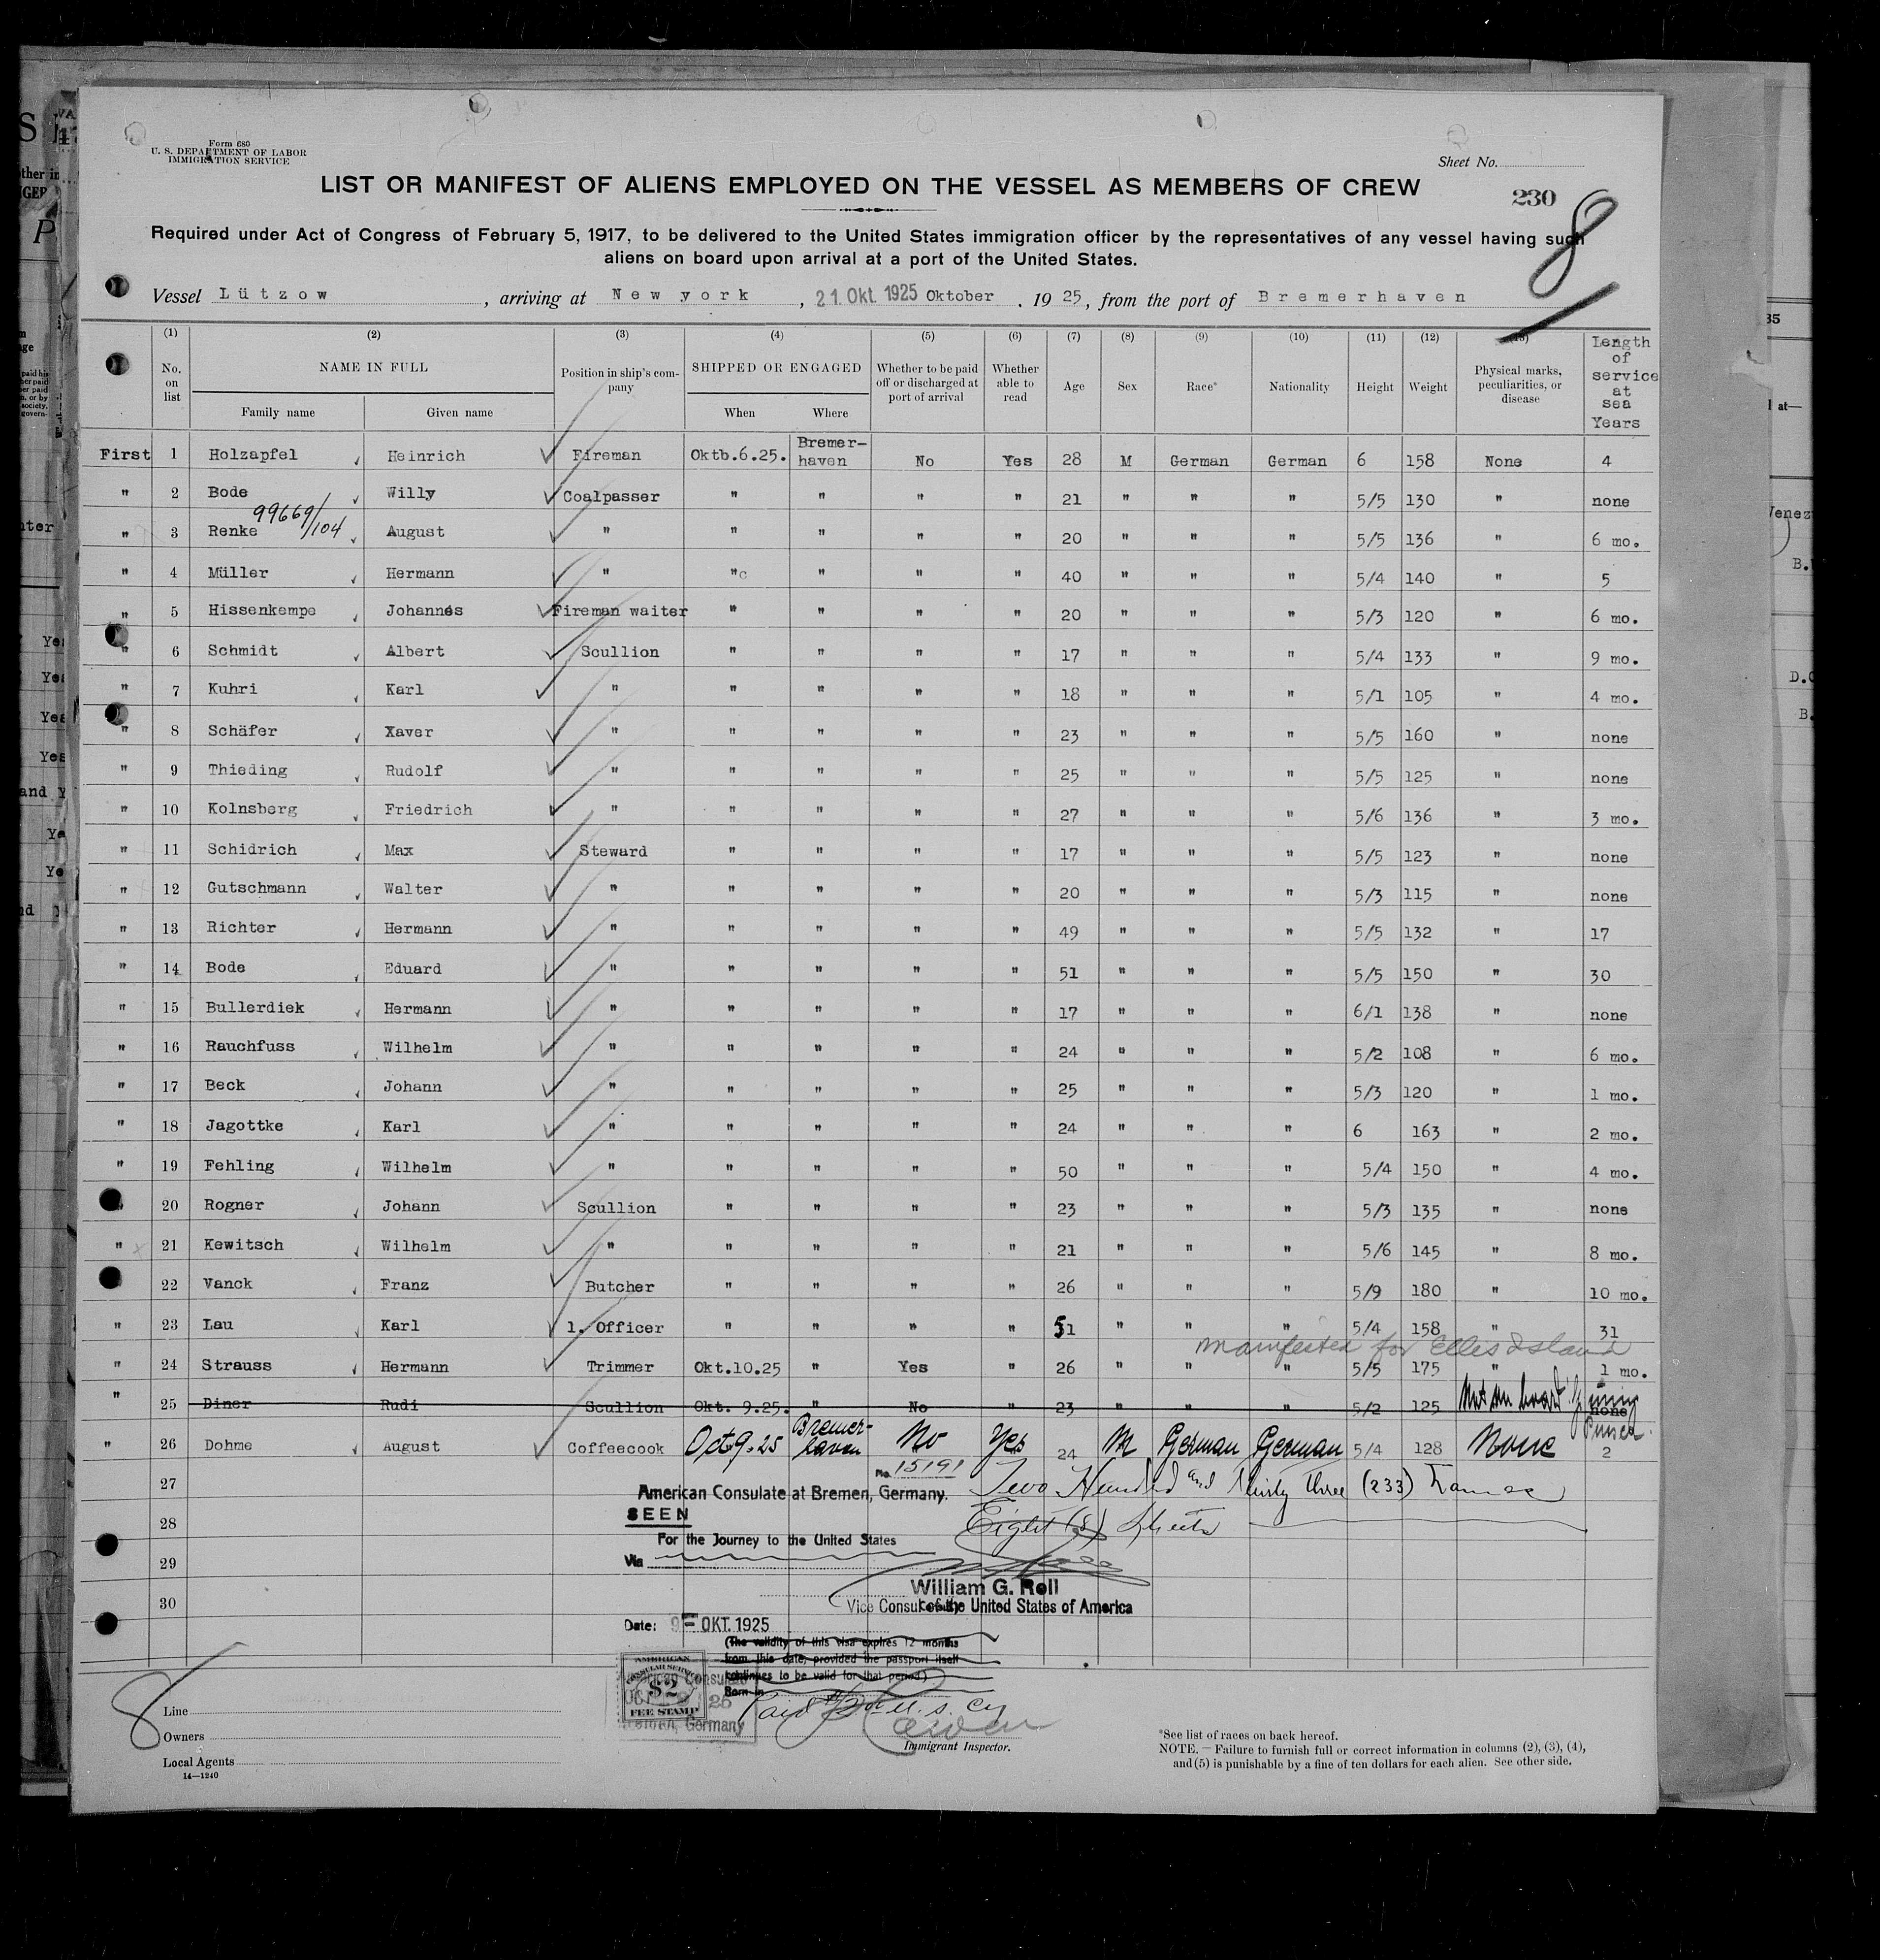 Form 680
U. S. DEPARTMENT OF LABOR
IMMIGRATION SERVICE
Sheet No.
LIST OR MANIFEST OF ALIENS EMPLOYED ON THE VESSEL AS MEMBERS OF CREW
230
8
Required under Act of Congress of February 5, 1917, to be delivered to the United States immigration officer by the representatives of any vessel having such
aliens on board upon arrival at a port of the United States.
Vessel Lützow, arriving at New york, 21. Okt. 1925 Oktober, 1925, from the port of Bremerhaven
(1) (2) (3) (4) (5) (6) (7) (8) (9) (10) (11) (12) (13) Length of service at sea Years
No. on list NAME IN FULL Position in ship's company SHIPPED OR ENGAGED Whether to be paid off or discharged at port of arrival Whether able to read Age Sex Race* Nationality Height Weight Physical marks, peculiarities, or disease
Family name Given name When Where
First 1 Holzapfel Heinrich Fireman Oktb.6.25. Bremer-haven No Yes 28 M German German 6 158 None 4
" 2 Bode Willy Coalpasser " " " " 21 " " " 5/5 130 " none
99669/104
" 3 Renke August " " " " " 20 " " " 5/5 136 " 6 mo.
" 4 Müller Hermann " "c " " " 40 " " " 5/4 140 " 5
" 5 Hissenkempe Johannes Fireman waiter " " " " 20 " " " 5/3 120 " 6 mo.
" 6 Schmidt Albert Scullion " " " " 17 " " " 5/4 133 " 9 mo.
" 7 Kuhri Karl " " " " " 18 " " " 5/1 105 " 4 mo.
" 8 Schäfer Xaver " " " " " 23 " " " 5/5 160 " none
" 9 Thieding Rudolf " " " " " 25 " " " 5/5 125 " none
" 10 Kolnsberg Friedrich " " " " " 27 " " " 5/6 136 " 3 mo.
" 11 Schidrich Max Steward " " " " 17 " " " 5/5 123 " none
" 12 Gutschmann Walter " " " " " 20 " " " 5/3 115 " none
" 13 Richter Hermann " " " " " 49 " " " 5/5 132 " 17
" 14 Bode Eduard " " " " " 51 " " " 5/5 150 " 30
" 15 Bullerdiek Hermann " " " " " 17 " " " 6/1 138 " none
" 16 Rauchfuss Wilhelm " " " " " 24 " " " 5/2 108 " 6 mo.
" 17 Beck Johann " " " " " 25 " " " 5/3 120 " 1 mo.
" 18 Jagottke Karl " " " " " 24 " " " 6 163 " 2 mo.
" 19 Fehling Wilhelm " " " " " 50 " " " 5/4 150 " 4 mo.
" 20 Rogner Johann Scullion " " " " 23 " " " 5/3 135 " none
" 21 Kewitsch Wilhelm " " " " " 21 " " " 5/6 145 " 8 mo.
" 22 Vanck Franz Butcher " " " " 26 " " " 5/9 180 " 10 mo.
" 23 Lau Karl 1. Officer " " " " 51 " " " 5/4 158 " 31
manifested for Ellis Island
" 24 Strauss Hermann Trimmer Okt.10.25 " Yes " 26 " " " 5/5 175 " 1 mo.
" 25 Diner Rudi Scullion Okt. 9.25. " No " 23 " " " 5/2 125 Not on board none
" 26 Dohme August Coffeecook Oct 9. 25 Bremer-haven No Yes 24 M German German 5/4 128 None 2
27
28
29
30
No. 15191
American Consulate at Bremen, Germany.
Two Hundred and thirty three (233) names
SEEN
Eight (8) sheets
For the Journey to the United States
Via
William G. Roll
Vice Consul of the United States of America
Date: 9- OKT. 1925
(The validity of this visa expires 12 months
from this date, provided the passport itself
continues to be valid for that period.)
Born in
AMERICAN
CONSULAR SERVICE
$2
FEE STAMP
American Consulate
Bremen, Germany
Paid $2 U. S. Cy
8
Line
Owners
Local Agents
14—1240
Immigrant Inspector.
*See list of races on back hereof.
NOTE. — Failure to furnish full or correct information in columns (2), (3), (4),
and (5) is punishable by a fine of ten dollars for each alien. See other side.